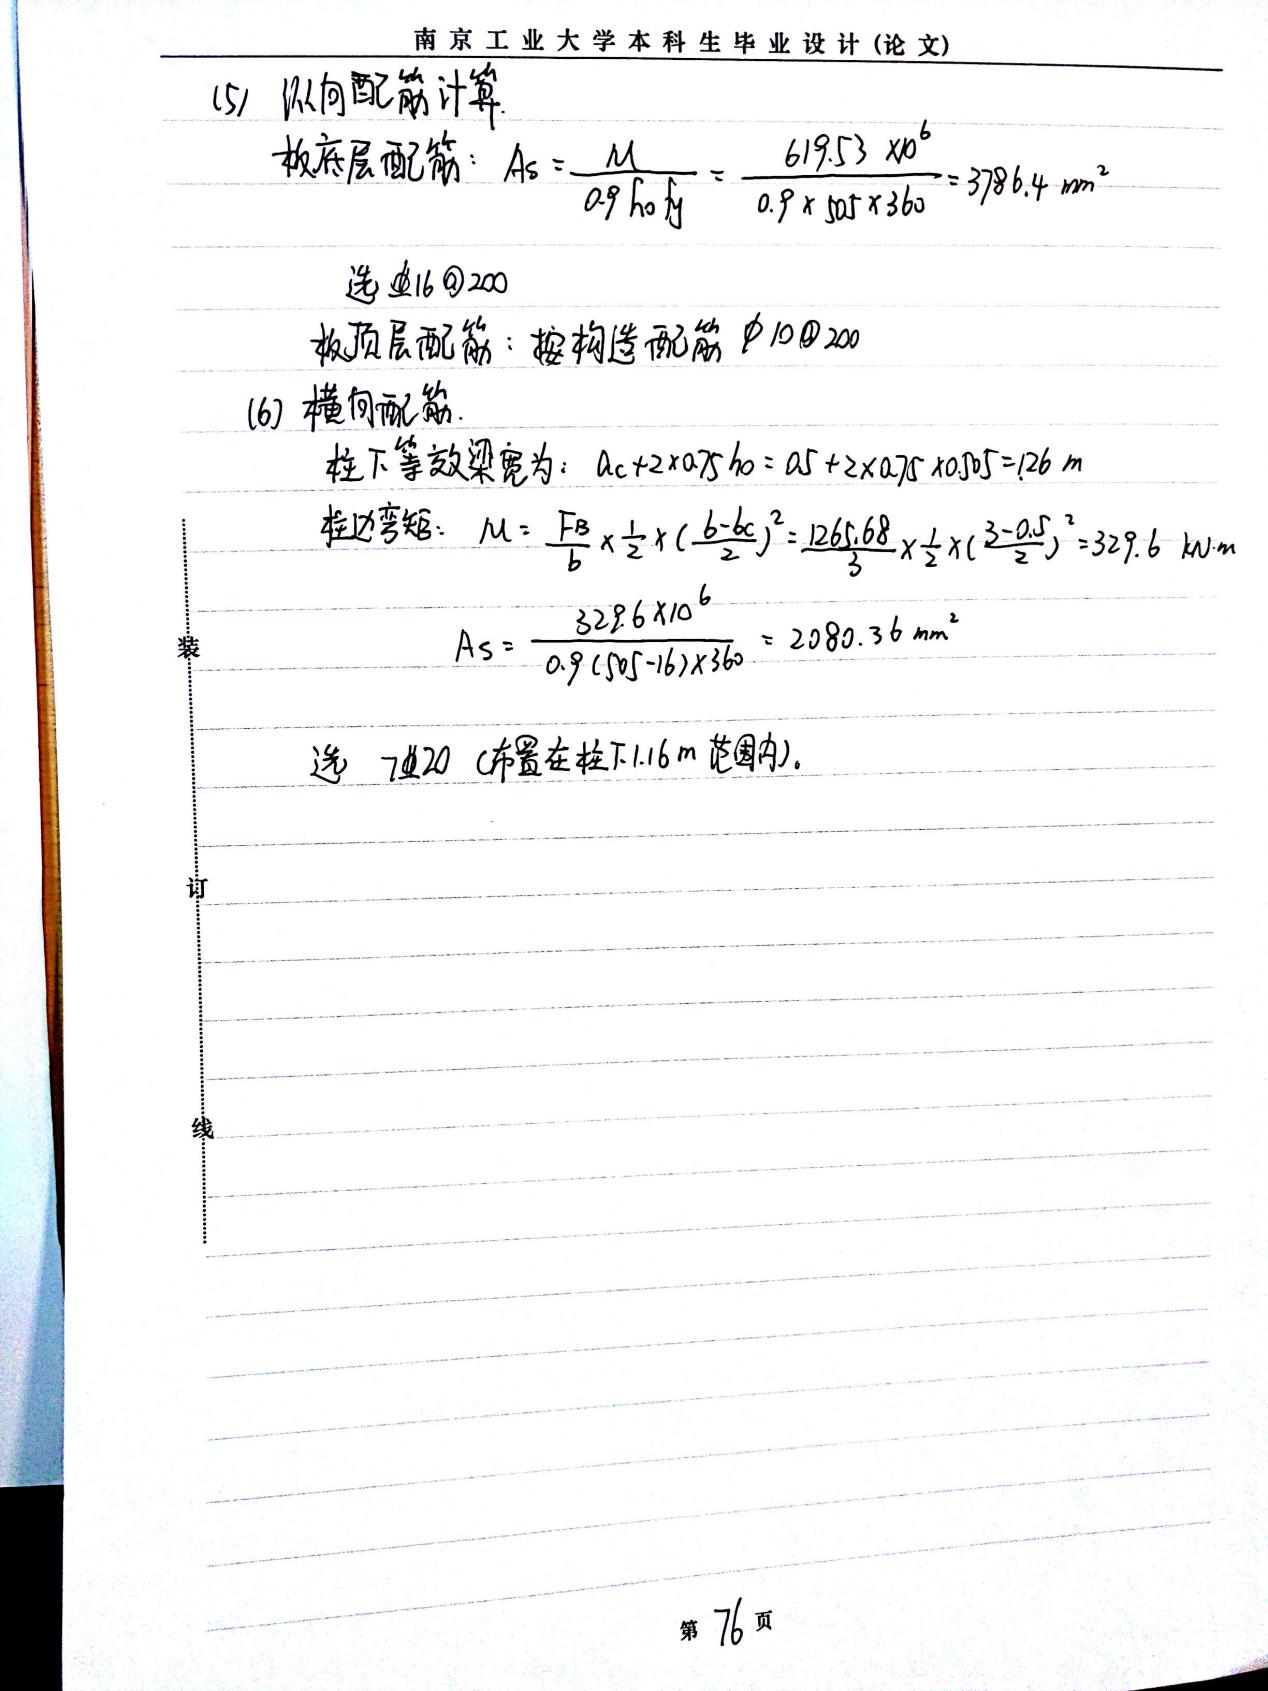 南京工业大学本科生毕业设计(论文)
(5) 纵向配筋计算.
板底层配筋: As = M / 0.9 h₀ fy = 619.53 ×10⁶ / 0.9 × 505 × 360 = 3786.4 mm²
选 ⌀16@200
板顶层配筋: 按构造配筋 ϕ10@200
(6) 横向配筋.
柱下等效梁宽为: ac+2×0.75h₀ = 0.5+2×0.75×0.505=1.26 m
柱边弯矩: M = FB/b × 1/2 × ((b-bc)/2)² = 1265.68/3 × 1/2 × ((3-0.5)/2)² = 329.6 kN·m
As = 329.6×10⁶ / 0.9(505-16)×360 = 2080.36 mm²
选 7⌀20 (布置在柱下1.16m范围内)。
装
订
线
第 76 页